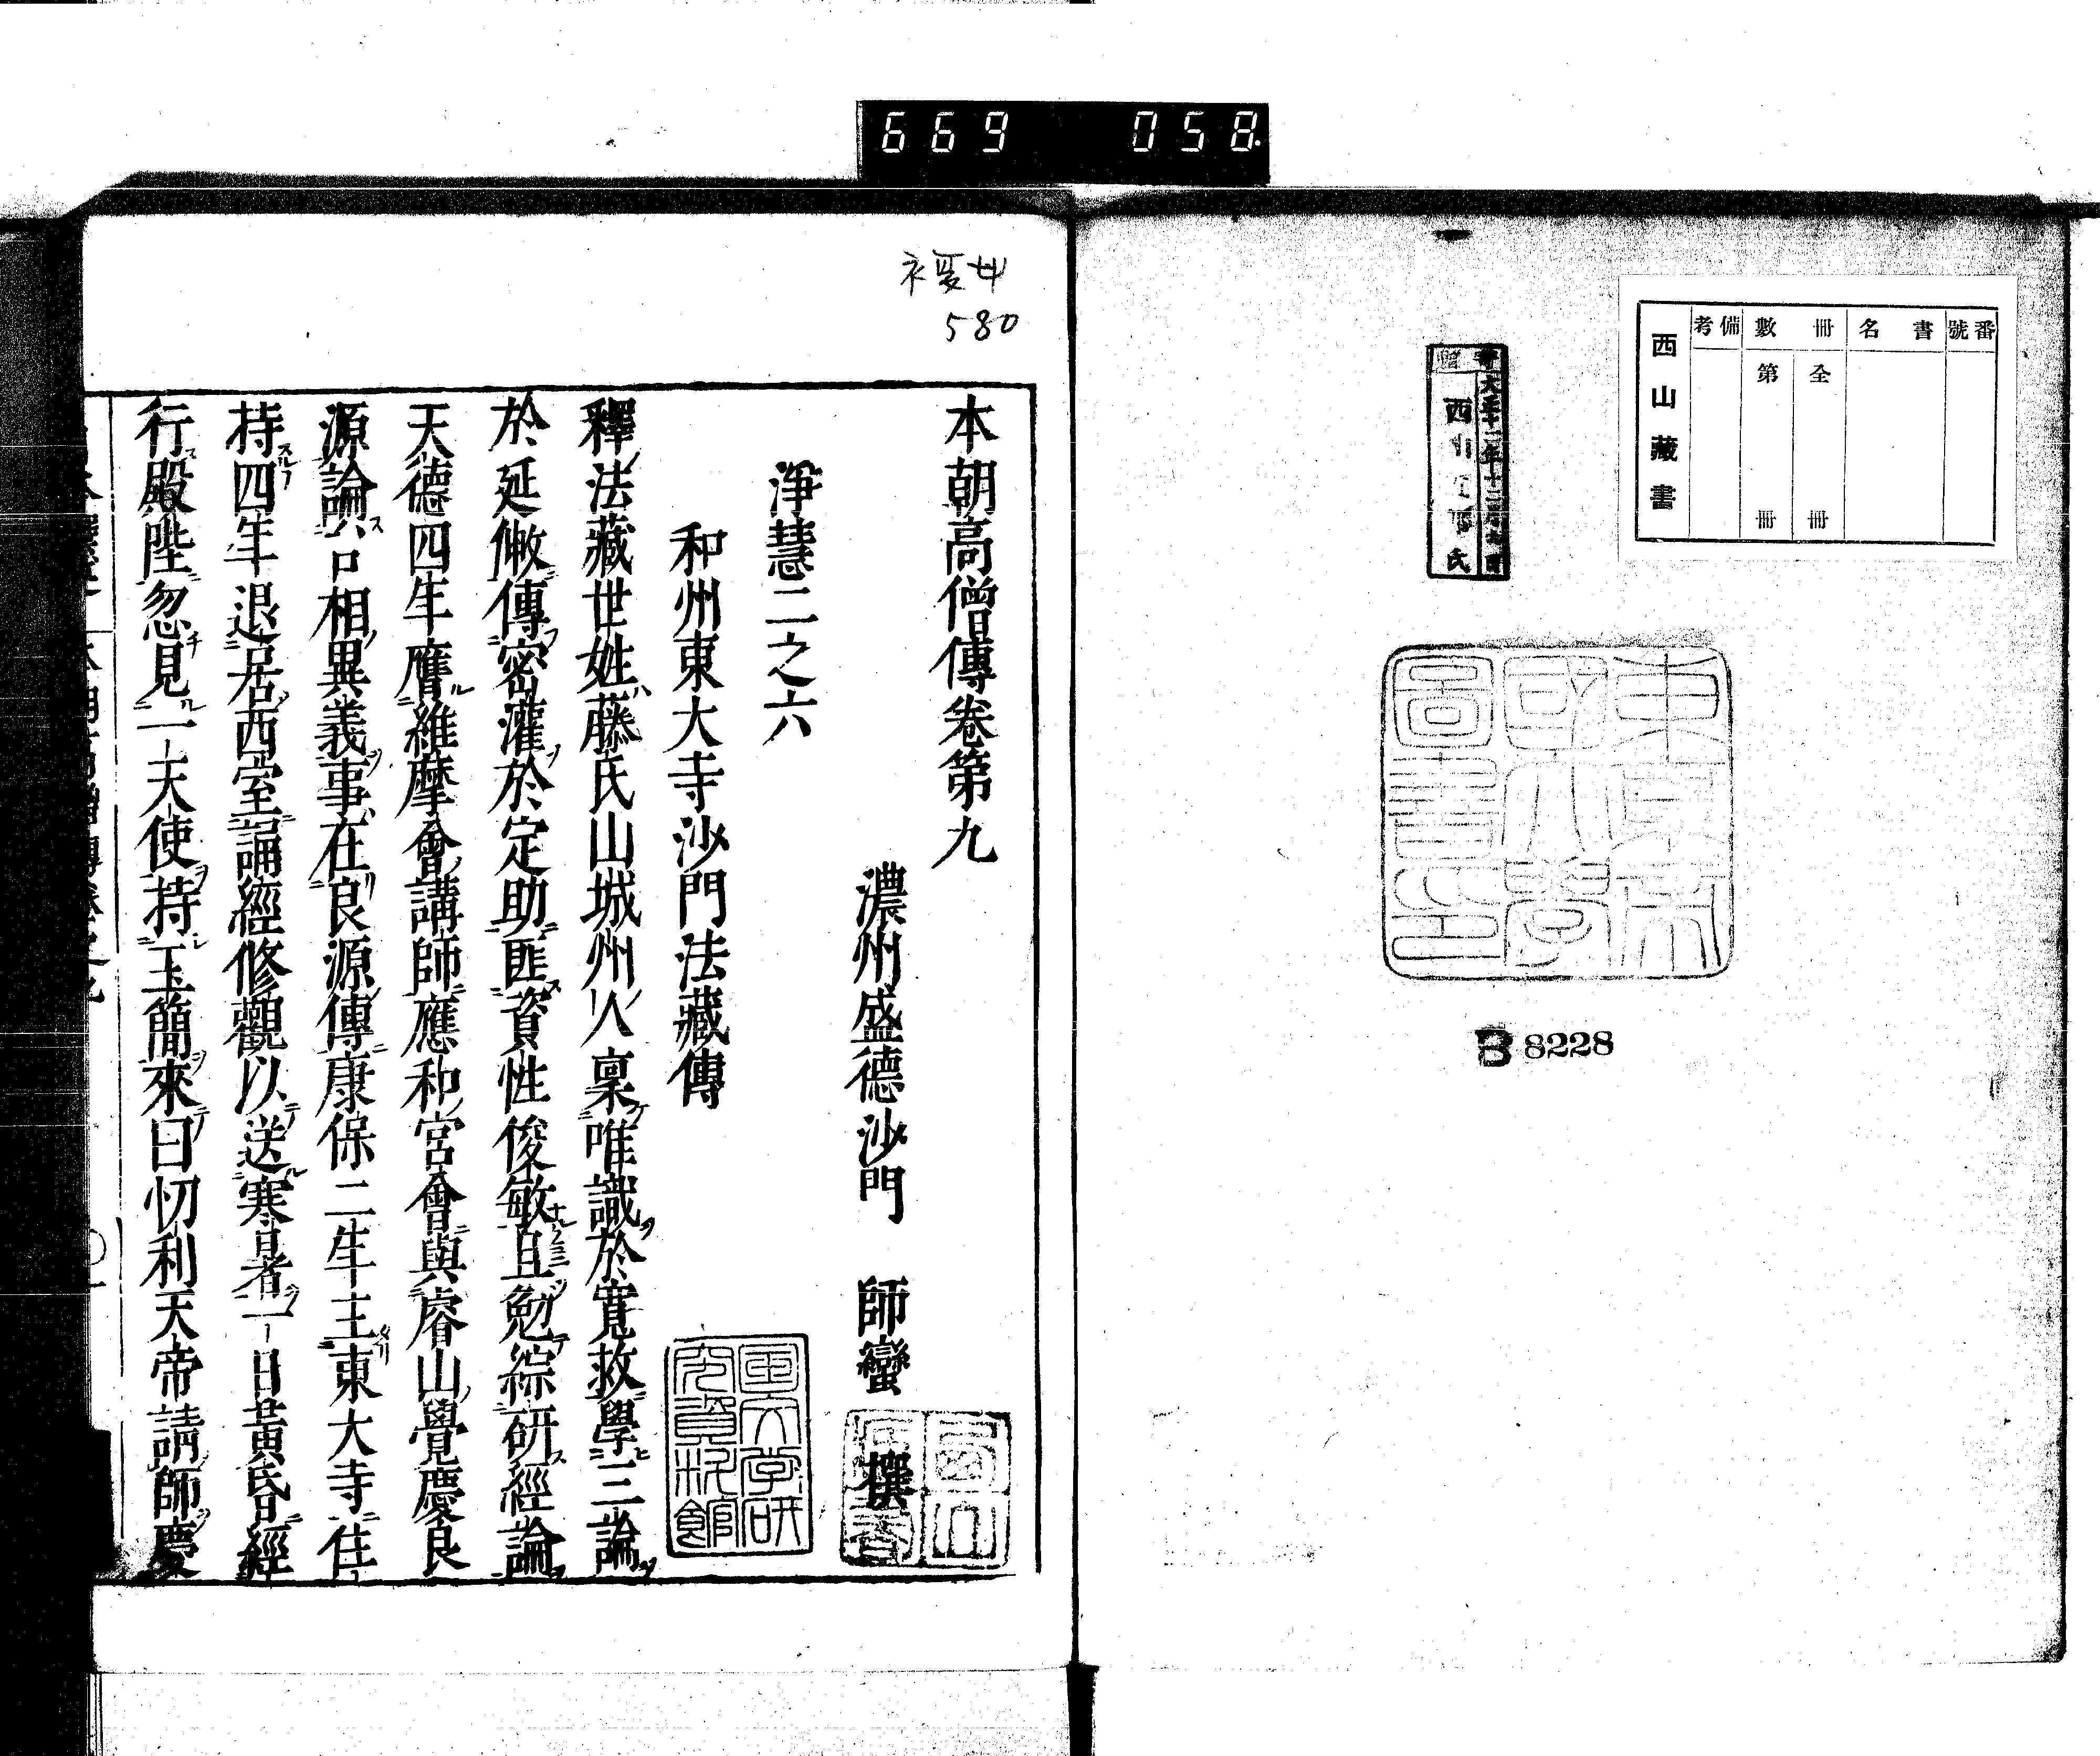 669 058
番號
書名
冊數
全 冊
第 冊
備考
西山藏書
寄贈
大正十二年十二月
西 氏
東京帝
國大學
圖書印
B 8228
580
本朝高僧傳卷第九
濃州盛德沙門 師蠻 撰
淨慧二之六
和州東大寺沙門法藏傳
釋法藏世姓藤氏山城州人稟唯識於寬救學三論
於延敒傳密灌於定助匪資性俊敏且勉綜研經論
天德四年膺維摩會講師應和宮會與睿山覺慶良
源論八口相異義事在良源傳康保二年主東大寺住
持四年退居西室誦經修觀以送寒暑一日黃昏經
行殿陛忽見一天使持玉簡來曰忉利天帝請師慶
國文学研
究資料館